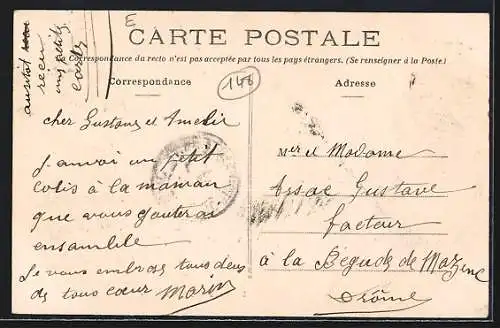 E
CARTE POSTALE
Correspondance du recto n'est pas acceptée par tous les pays étrangers. (Se renseigner à la Poste.)
Correspondance
Adresse
148
recu
cher Gustave et Amelie
J'anvoi un petit
colis à la maman
que vous gouteras
ensamble
Je vous embras tous deus
de tous cœur Marin
Mer et Madame
Assac Gustave
facteur
à la Begude de Mazenc
Drôme